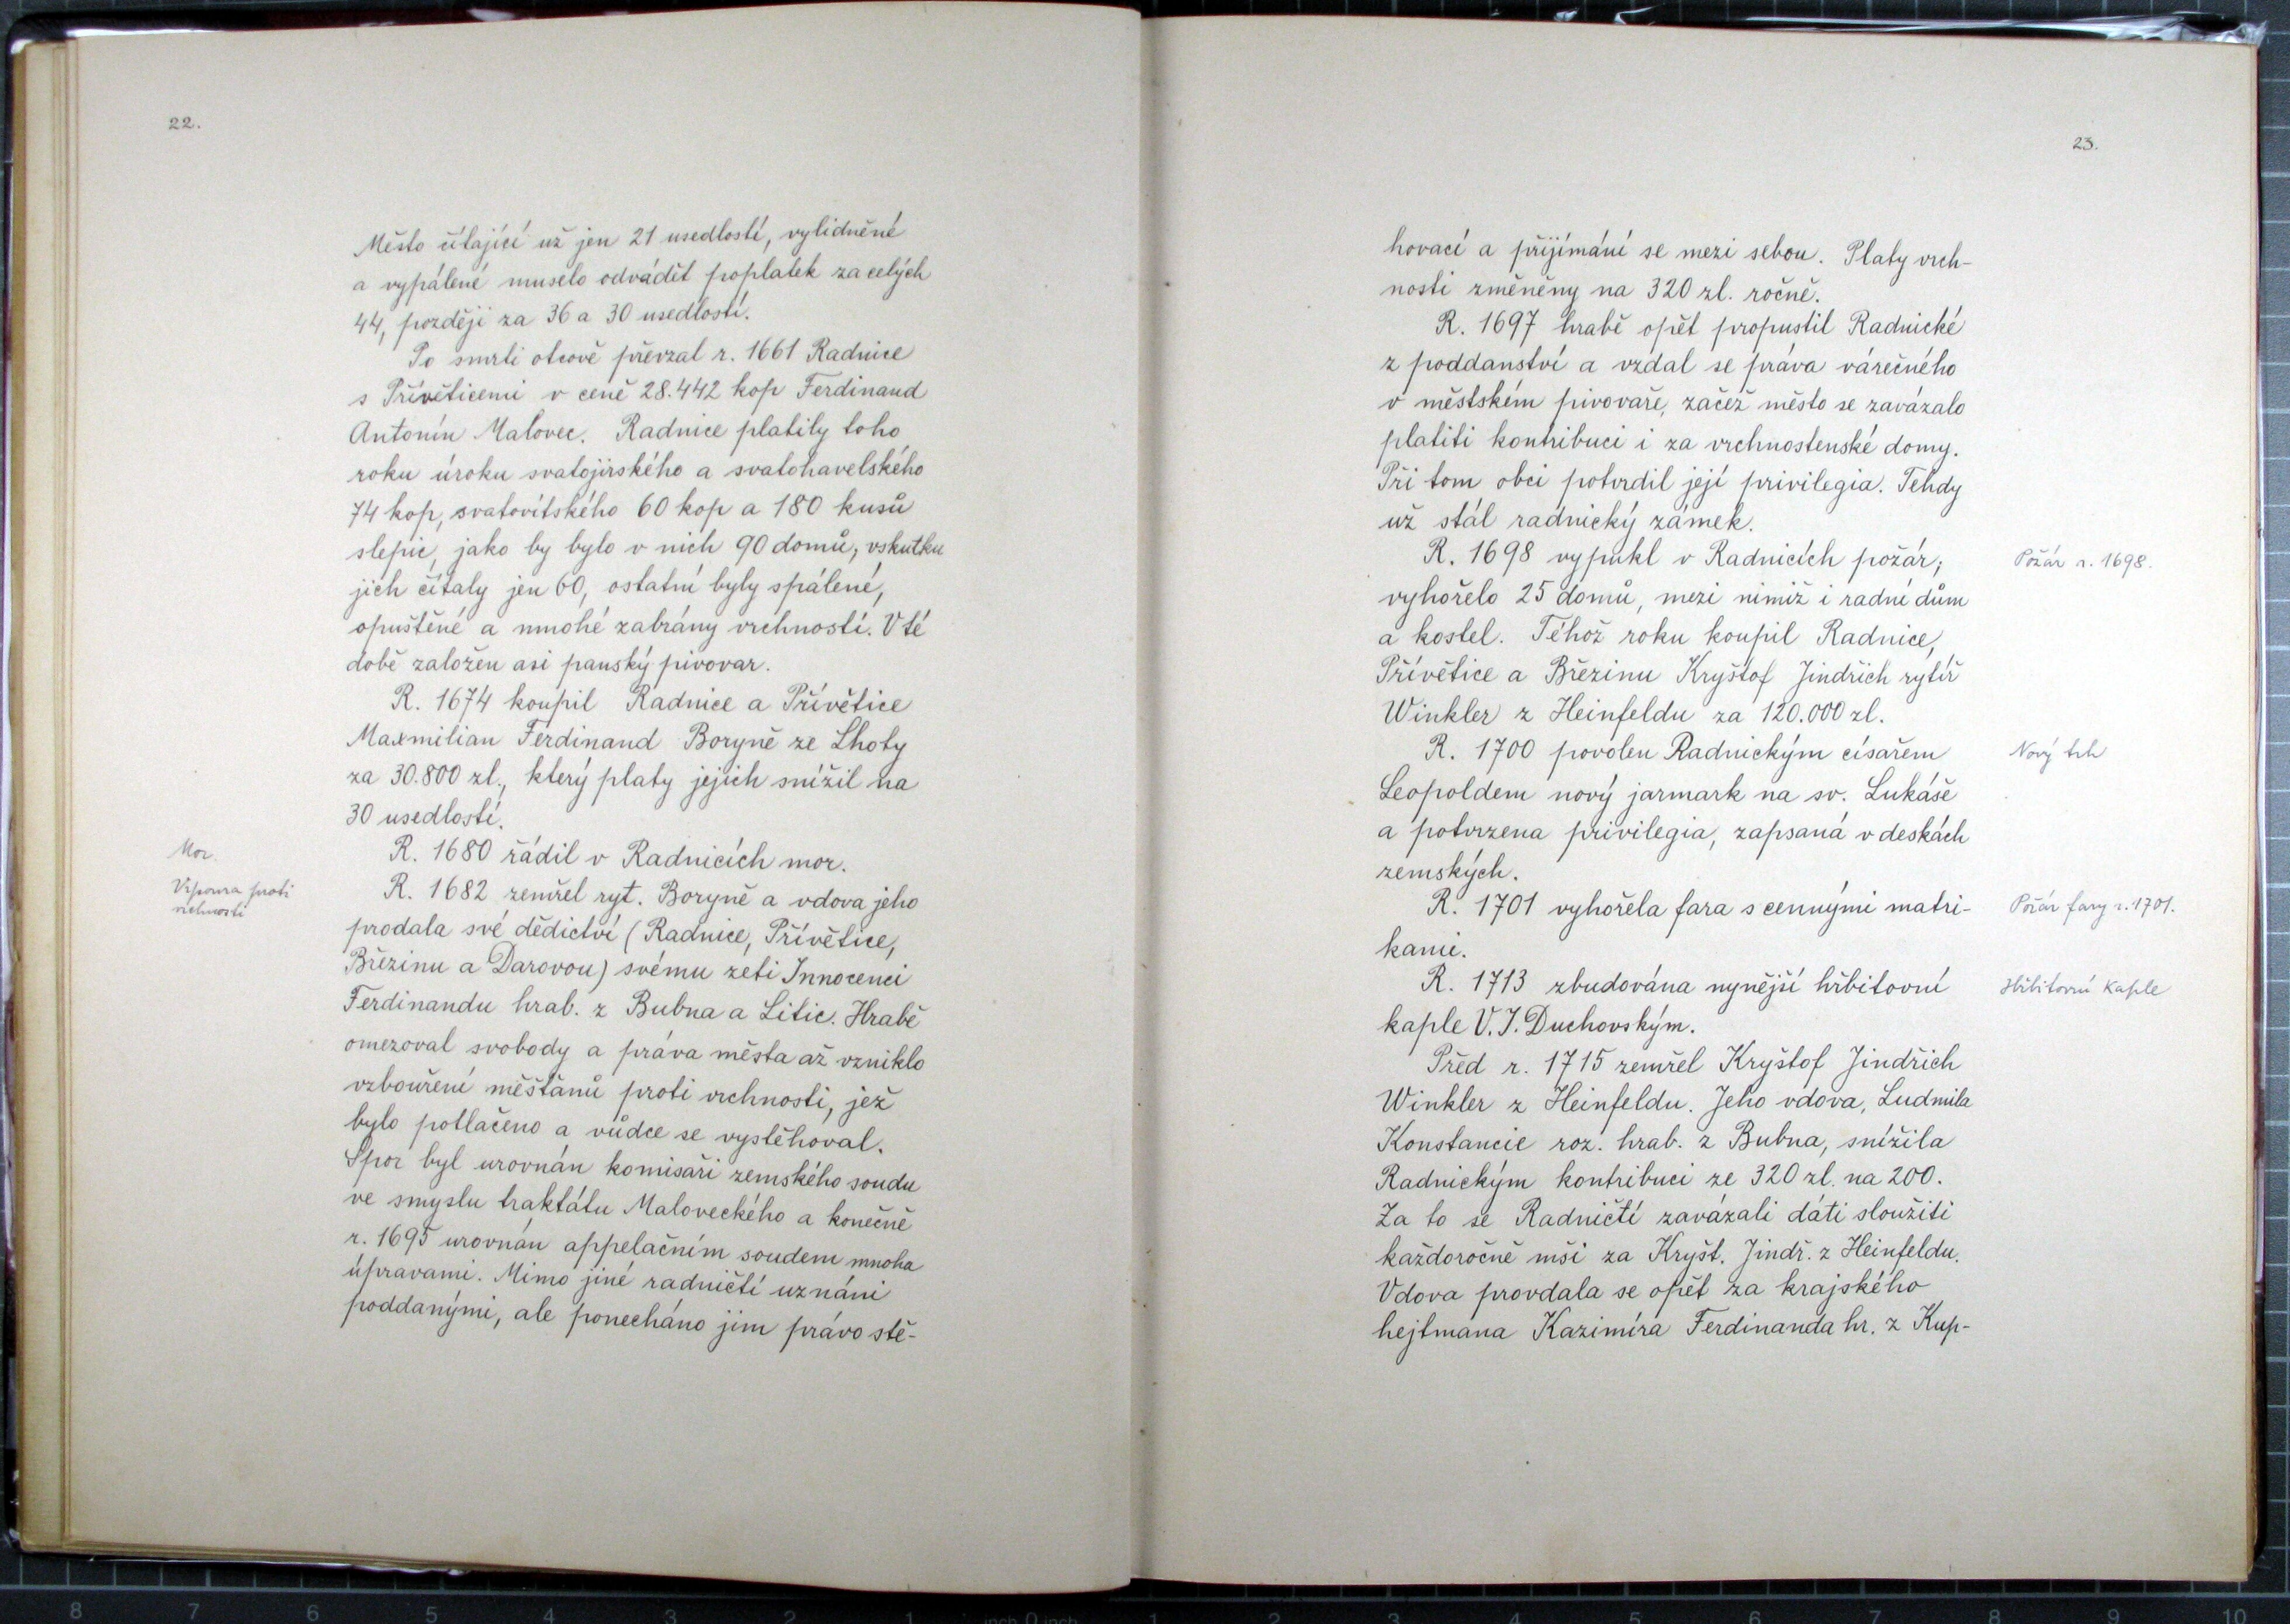 22.
Město čítající už jen 21 usedlostí, vylidněné
a vypálené muselo odvádět poplatek za celých
44, později za 36 a 30 usedlostí.
Po smrti otcově převzal r. 1661 Radnice
s Přívěticemi v ceně 28.442 kop Ferdinand
Antonín Malovec. Radnice platily toho
roku úroku svatojirského a svatohavelského
74 kop, svatovítského 60 kop a 180 kusů
slepic, jako by bylo v nich 90 domů, vskutku
jich čítaly jen 60, ostatní byly spálené,
opuštěné a mnohé zabrány vrchností. V té
době založen asi panský pivovar.
R. 1674 koupil Radnice a Přívětice
Maxmilian Ferdinand Boryně ze Lhoty
za 30.800 zl., který platy jejich snížil na
30 usedlostí.
Mor.
R. 1680 řádil v Radnicích mor.
Vzpoura proti
vrchnosti
R. 1682 zemřel ryt. Boryně a vdova jeho
prodala své dědictví (Radnice, Přívětice,
Březinu a Darovou) svému zeti Innocenci
Ferdinandu hrab. z Bubna a Litic. Hrabě
omezoval svobody a práva města až vzniklo
vzbouření měšťanů proti vrchnosti, jež
bylo potlačeno a vůdce se vystěhoval.
Spor byl urovnán komisaři zemského soudu
ve smyslu traktátu Maloveckého a konečně
r. 1695 urovnán appelačním soudem mnoha
úpravami. Mimo jiné radničtí uznáni
poddanými, ale ponecháno jim právo stě-
23.
hovací a přijímání se mezi sebou. Platy vrch-
nosti změněny na 320 zl. ročně.
R. 1697 hrabě opět propustil Radnické
z poddanství a vzdal se práva várečného
v městském pivovaře, začež město se zavázalo
platiti kontribuci i za vrchnostenské domy.
Při tom obci potvrdil její privilegia. Tehdy
už stál radnický zámek.
R. 1698 vypukl v Radnicích požár;
Požár r. 1698.
vyhořelo 25 domů, mezi nimiž i radní dům
a kostel. Téhož roku koupil Radnice,
Přívětice a Březinu Kryštof Jindřich rytíř
Winkler z Heinfeldu za 120.000 zl.
R. 1700 povolen Radnickým císařem
Nový trh
Leopoldem nový jarmark na sv. Lukáše
a potvrzena privilegia, zapsaná v deskách
zemských.
R. 1701 vyhořela fara s cennými matri-
Požár fary r. 1701.
kami.
R. 1713 zbudována nynější hřbitovní
Hřbitovní kaple
kaple V. J. Duchovským.
Před r. 1715 zemřel Kryštof Jindřich
Winkler z Heinfeldu. Jeho vdova, Ludmila
Konstancie roz. hrab. z Bubna, snížila
Radnickým kontribuci ze 320 zl. na 200.
Za to se Radničtí zavázali dáti sloužiti
každoročně mši za Kryšt. Jindř. z Heinfeldu.
Vdova provdala se opět za krajského
hejtmana Kazimíra Ferdinanda hr. z Kup-
8 7 6 5 4 3 2 1 inch 0 inch 1 2 3 4 5 6 7 8 9 10